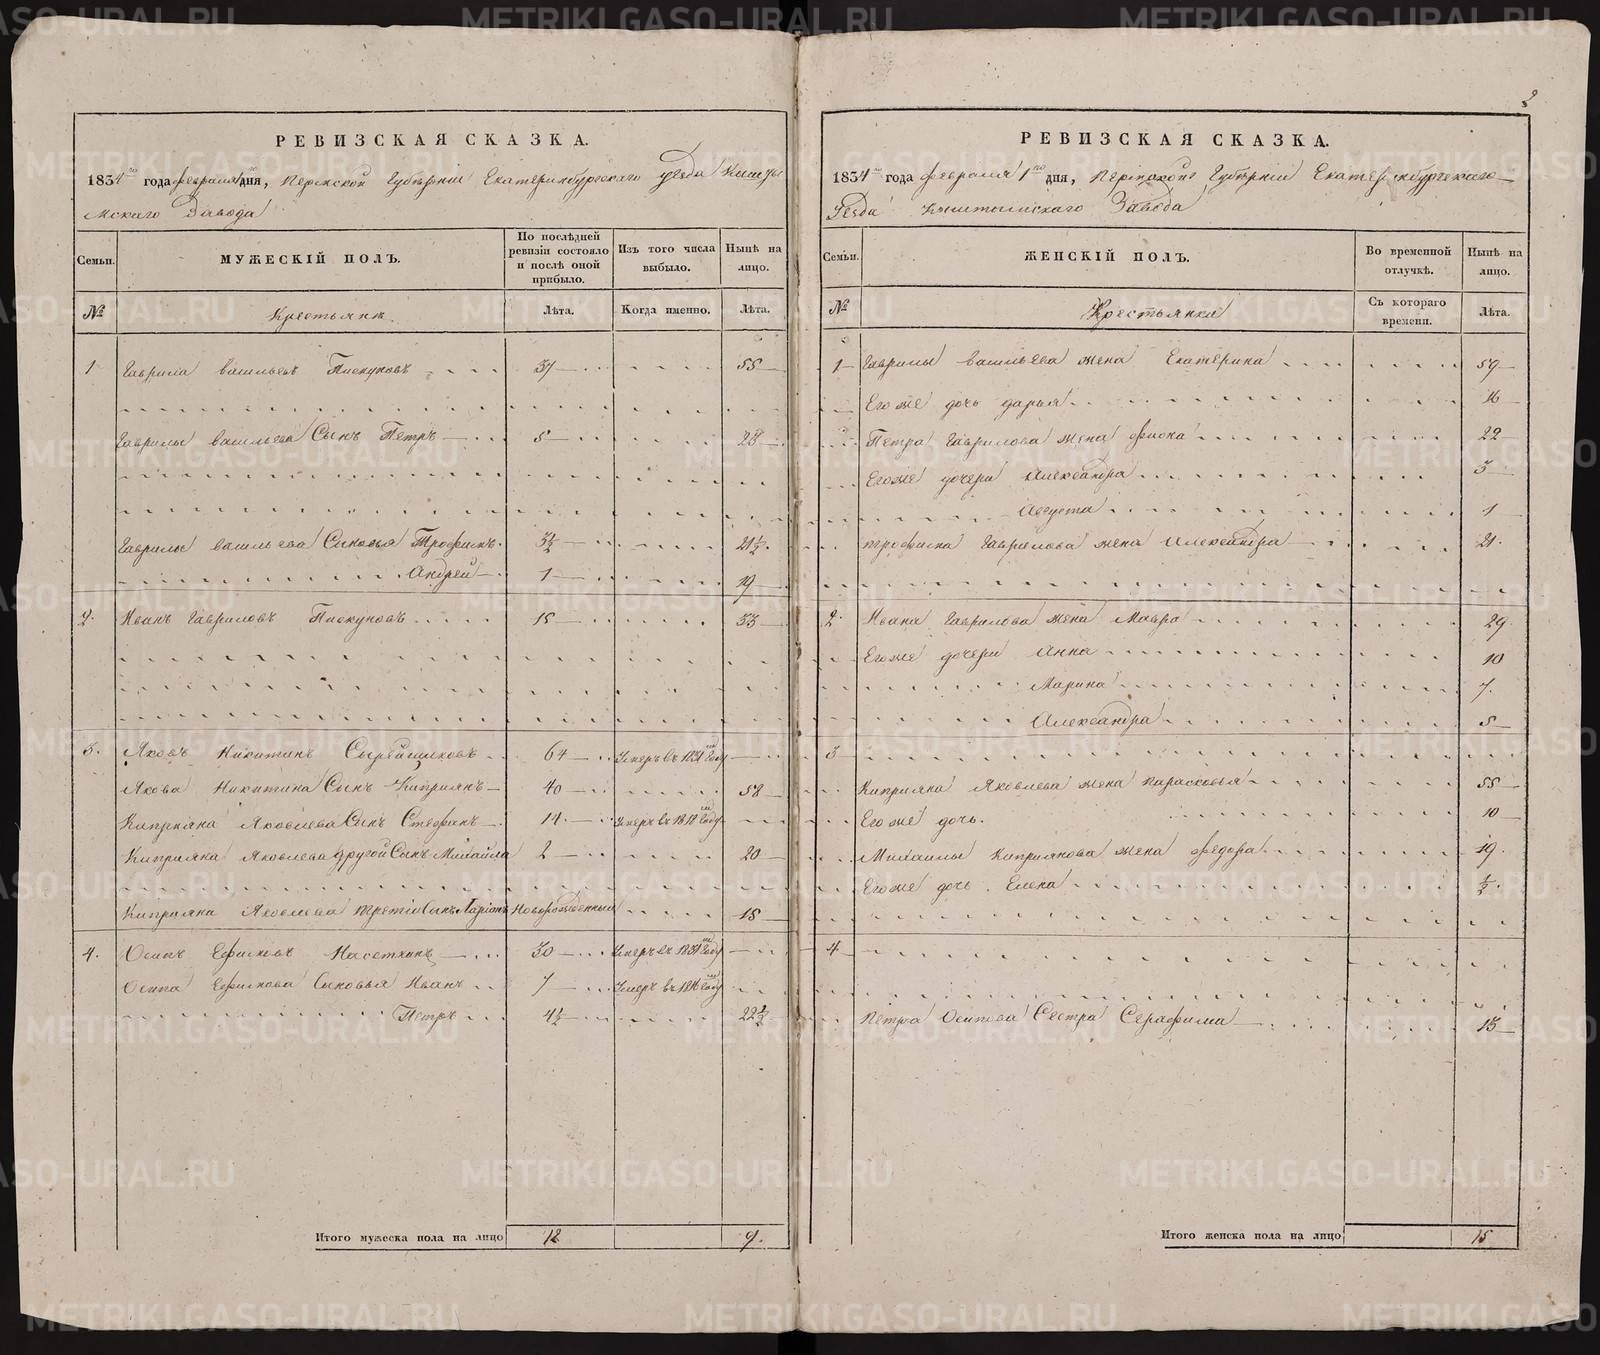 2
РЕВИЗСКАЯ СКАЗКА.
1834го года февраля 1го дня, Пермской Губернии Екатеринбургскаго уезда Кышты
мскаго Завода
Семьи.
МУЖЕСКІЙ ПОЛЪ.
По послѣдней ревизіи состояло и послѣ оной прибыло.
Изъ того числа выбыло.
Нынѣ на лицо.
№
Крестьяне.
Лѣта.
Когда именно.
Лѣта.
1 Гаврила Васильевъ Пискуновъ 37 55
Гаврилы Васильева Сынъ Петръ 5 23
Гаврилы Васильева Сыновья Трофимъ 3½ 21½
Андрей 1 19
2. Иванъ Гавриловъ Пискуновъ 15 33
3. Яковъ Никитинъ Сырейщиковъ 64 Умеръ въ 1831м Году
Якова Никитина Сынъ Киприянъ 40 58
Киприяна Яковлева Сынъ Стефанъ 14 Умеръ въ 1818м Году
Киприяна Яковлева другой Сынъ Михайла 2 20
Киприяна Яковлева третiй Сынъ Ларiонъ Новорожденный 15
4. Осипъ Ефимовъ Насеткинъ 30 Умеръ въ 1831м Году
Осипа Ефимова Сыновья Иванъ 7 Умеръ въ 1816м Году
Петръ 4½ 22½
Итого мужеска пола на лицо 12 9.
РЕВИЗСКАЯ СКАЗКА.
1834го года февраля 1го дня, Пермской Губернии Екатеринбургскаго
Уезда Кыштымскаго Завода
Семьи.
ЖЕНСКІЙ ПОЛЪ.
Во временной отлучкѣ.
Нынѣ на лицо.
№
Крестьянки
Съ котораго времени.
Лѣта.
1 Гаврилы Васильева жена Екатерина 59
Его же дочь Дарья 16
Петра Гаврилова жена Фиона 22
Его же дочери Александра 3
Августа 1
Трофима Гаврилова жена Александра 21.
2 Ивана Гаврилова жена Мавра 29
Его же дочери Анна 10
Марина 7.
Александра 5
3
Киприяна Яковлева жена Парасковья 55
Его же дочь. 10
Михайлы Киприянова жена Федора 19
Его же дочь. Елена ½.
4
Петра Осипова Сестра Серафима 15
Итого женска пола на лицо 15
METRIKI.GASO-URAL.RU